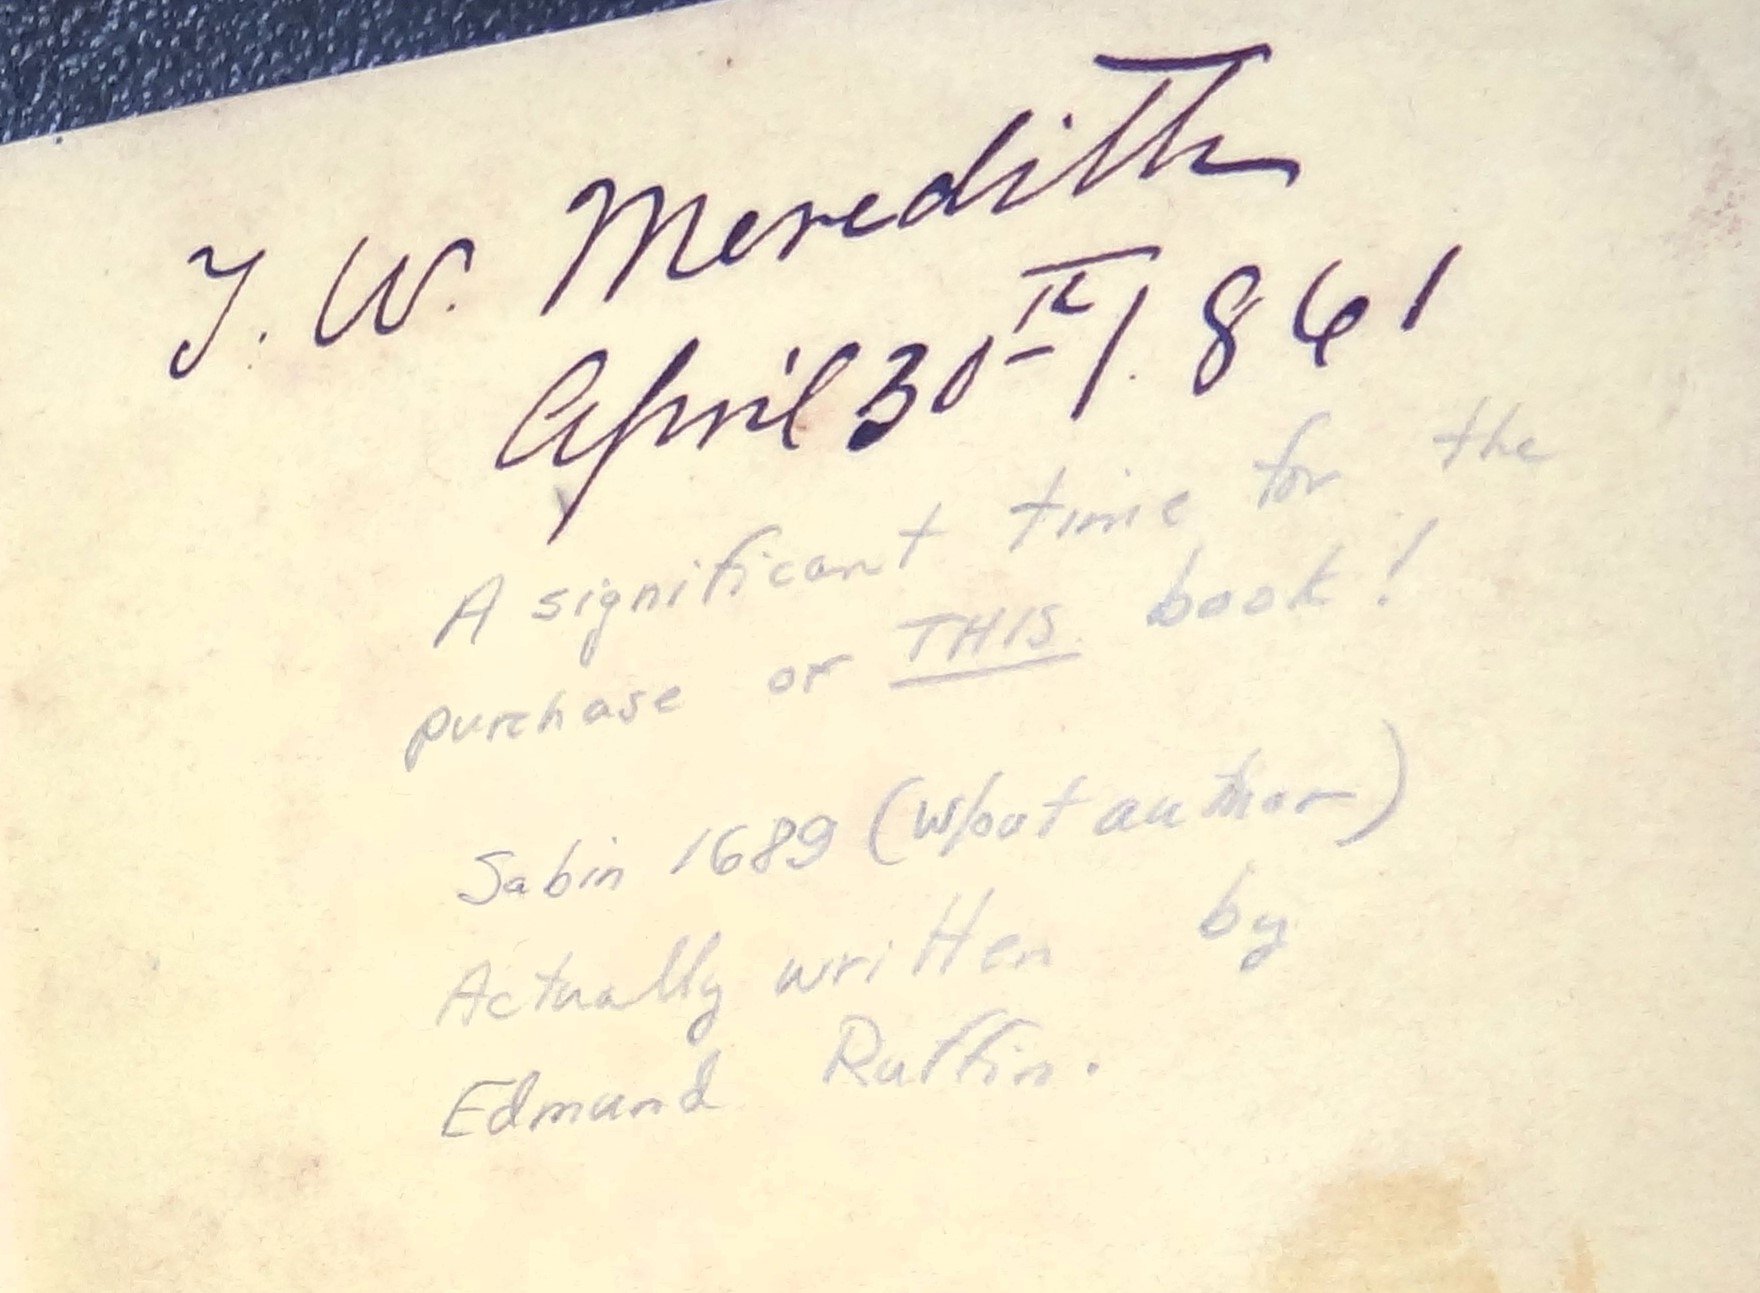 J. W. Meredith
April 30th / 1861
A significant time for the
purchase of THIS book!
Sabin 1689 (w/out author)
Actually written by
Edmund Ruffin.